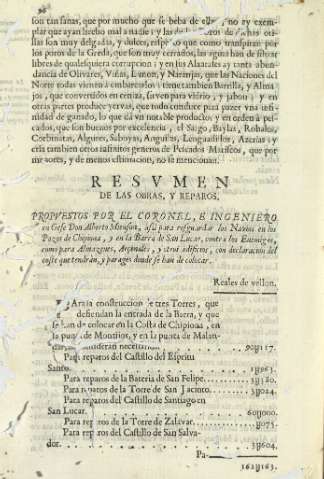 son tan sanas, que por mucho que se beba de ellas, no ay exem-
plar que ayan hecho mal a nadie; y las de los Pozos de dichas otri-
llas son muy delgadas, y dulces, respecto que como transpiran por
los poros de la Greda, que son muy cerrados, las aguas han de salir
libres de qualesquiera corrupcion; y en los ay tanta abun-
dancia de Olivares, Viñas, Limon, y Naranjas, que las Naciones del
Norte todas vienen a embarcalos; tiene tambien Barrilla, y Alma
jos, que convertidos en ceniza, sirven para vidrio, y jabon; y en
otras partes produce yervas, que todo conduce para pacer una infi-
nidad de ganado, lo que dà un notable producto; y en orden à pes-
cados, que son buenos por excelencia, el Sargo, Baylas, Robalos,
Corbinatas, Lenguadillos, Azedias; y
cria tambien otros infinitos generos de Pescados Mariscos, que por
y de menos estimacion, no se mencionan.
RESVMEN
DE LAS OBRAS, Y REPAROS,
PROPVESTOS POR EL CORONEL, E INGENIERO
en Gefe Don Alberto Mienson, assi para resguardar los Navios en los
Pozos de Chipiona, y en la Barra de San Lucar, contra los Enemigos,
como para Almagacenes, Arsenales, y otros edificios, con declaracion del
coste que tendràn, y parages donde se han de colocar.
Reales de vellon.
Para la construccion de tres Torres, que
defiendan la entrada de la Barra, y que
se han de colocar en la Costa de Chipiona, en
la punta de Montijos, y en la punta de Malan-
necessita
Para reparos del Castillo del Espiritu
Santo.
Para reparos de la Bateria de San Felipe.
Para reparos de la Torre de San Jacinto.
Para reparos del Castillo de Santiago en
San Lucar.
Para reparos de la Torre de Zalavar.
Para reparos del Castillo de San Salva
dor.
Pa-